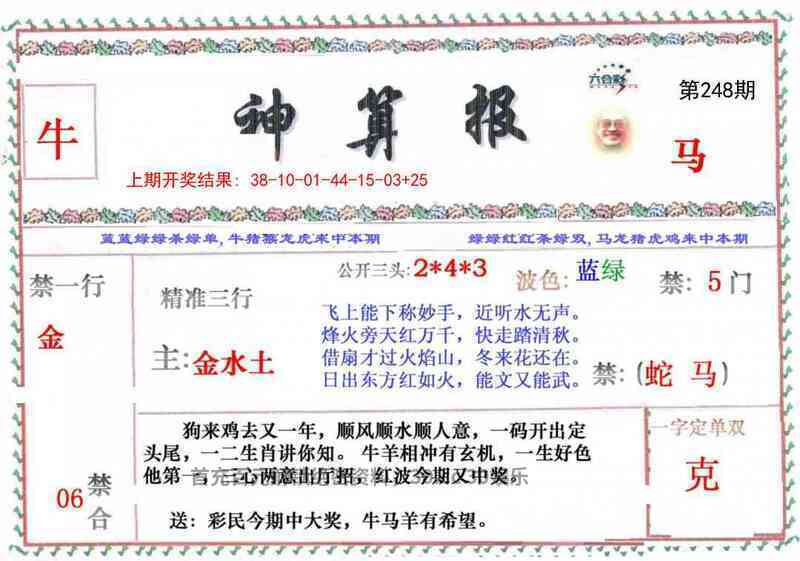 六合彩
第248期
牛
神算报
马
上期开奖结果：38-10-01-44-15-03+25
蓝蓝绿绿杀绿单,牛猪猴龙虎来中本期
绿绿红红杀绿双,马龙猪虎鸡来中本期
禁一行
金
精准三行
主:金水土
公开三头:2*4*3
波色:蓝绿
禁:5门
飞上能下称妙手，近听水无声。
烽火旁天红万千，快走踏清秋。
借扇才过火焰山，冬来花还在。
日出东方红如火，能文又能武。
禁:(蛇 马)
06
禁合
狗来鸡去又一年，顺风顺水顺人意，一码开出定
头尾，一二生肖讲你知。牛羊相冲有玄机，一生好色
他第一，三心两意出厅招，红波今期又中奖。
送：彩民今期中大奖，牛马羊有希望。
一字定单双
克